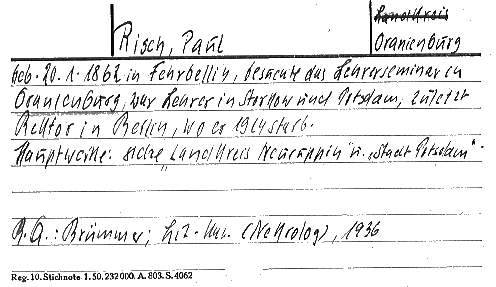 Landkreis
Risch, Paul
Oranienburg
geb. 20.1.1862 in Fehrbellin, besuchte das Lehrerseminar in
Oranienburg, war Lehrer in Storkow und Potsdam, zuletzt
Rektor in Berlin, wo er 1924 starb.
Hauptwerke: siehe "Landkreis Neuruppin" u. "Stadt Potsdam".
Brümmer; (Nekrolog), 1936
Reg. 10. Stichnote 1. 50. 232000. A. 803. S. 4062